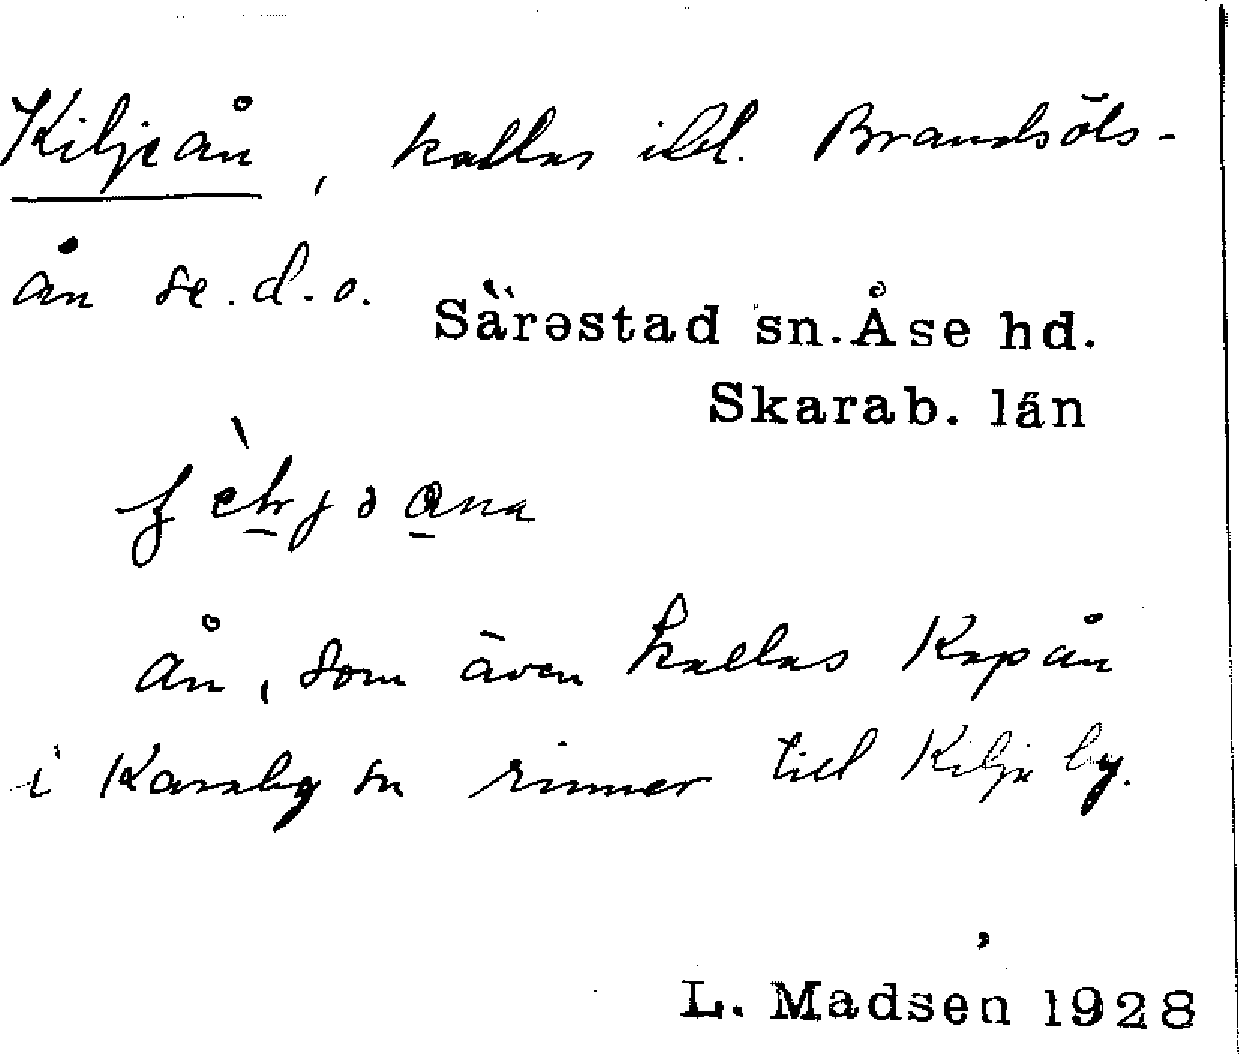 Kiljeån, kallas ibl. Brandsöls-
ån se.d.o.
Särəstad sn. Åse hd.
Skarab. län
ån, som även kallas Kapån
i Karaby sn rinner till Kilje by.
L. Madsen 1928